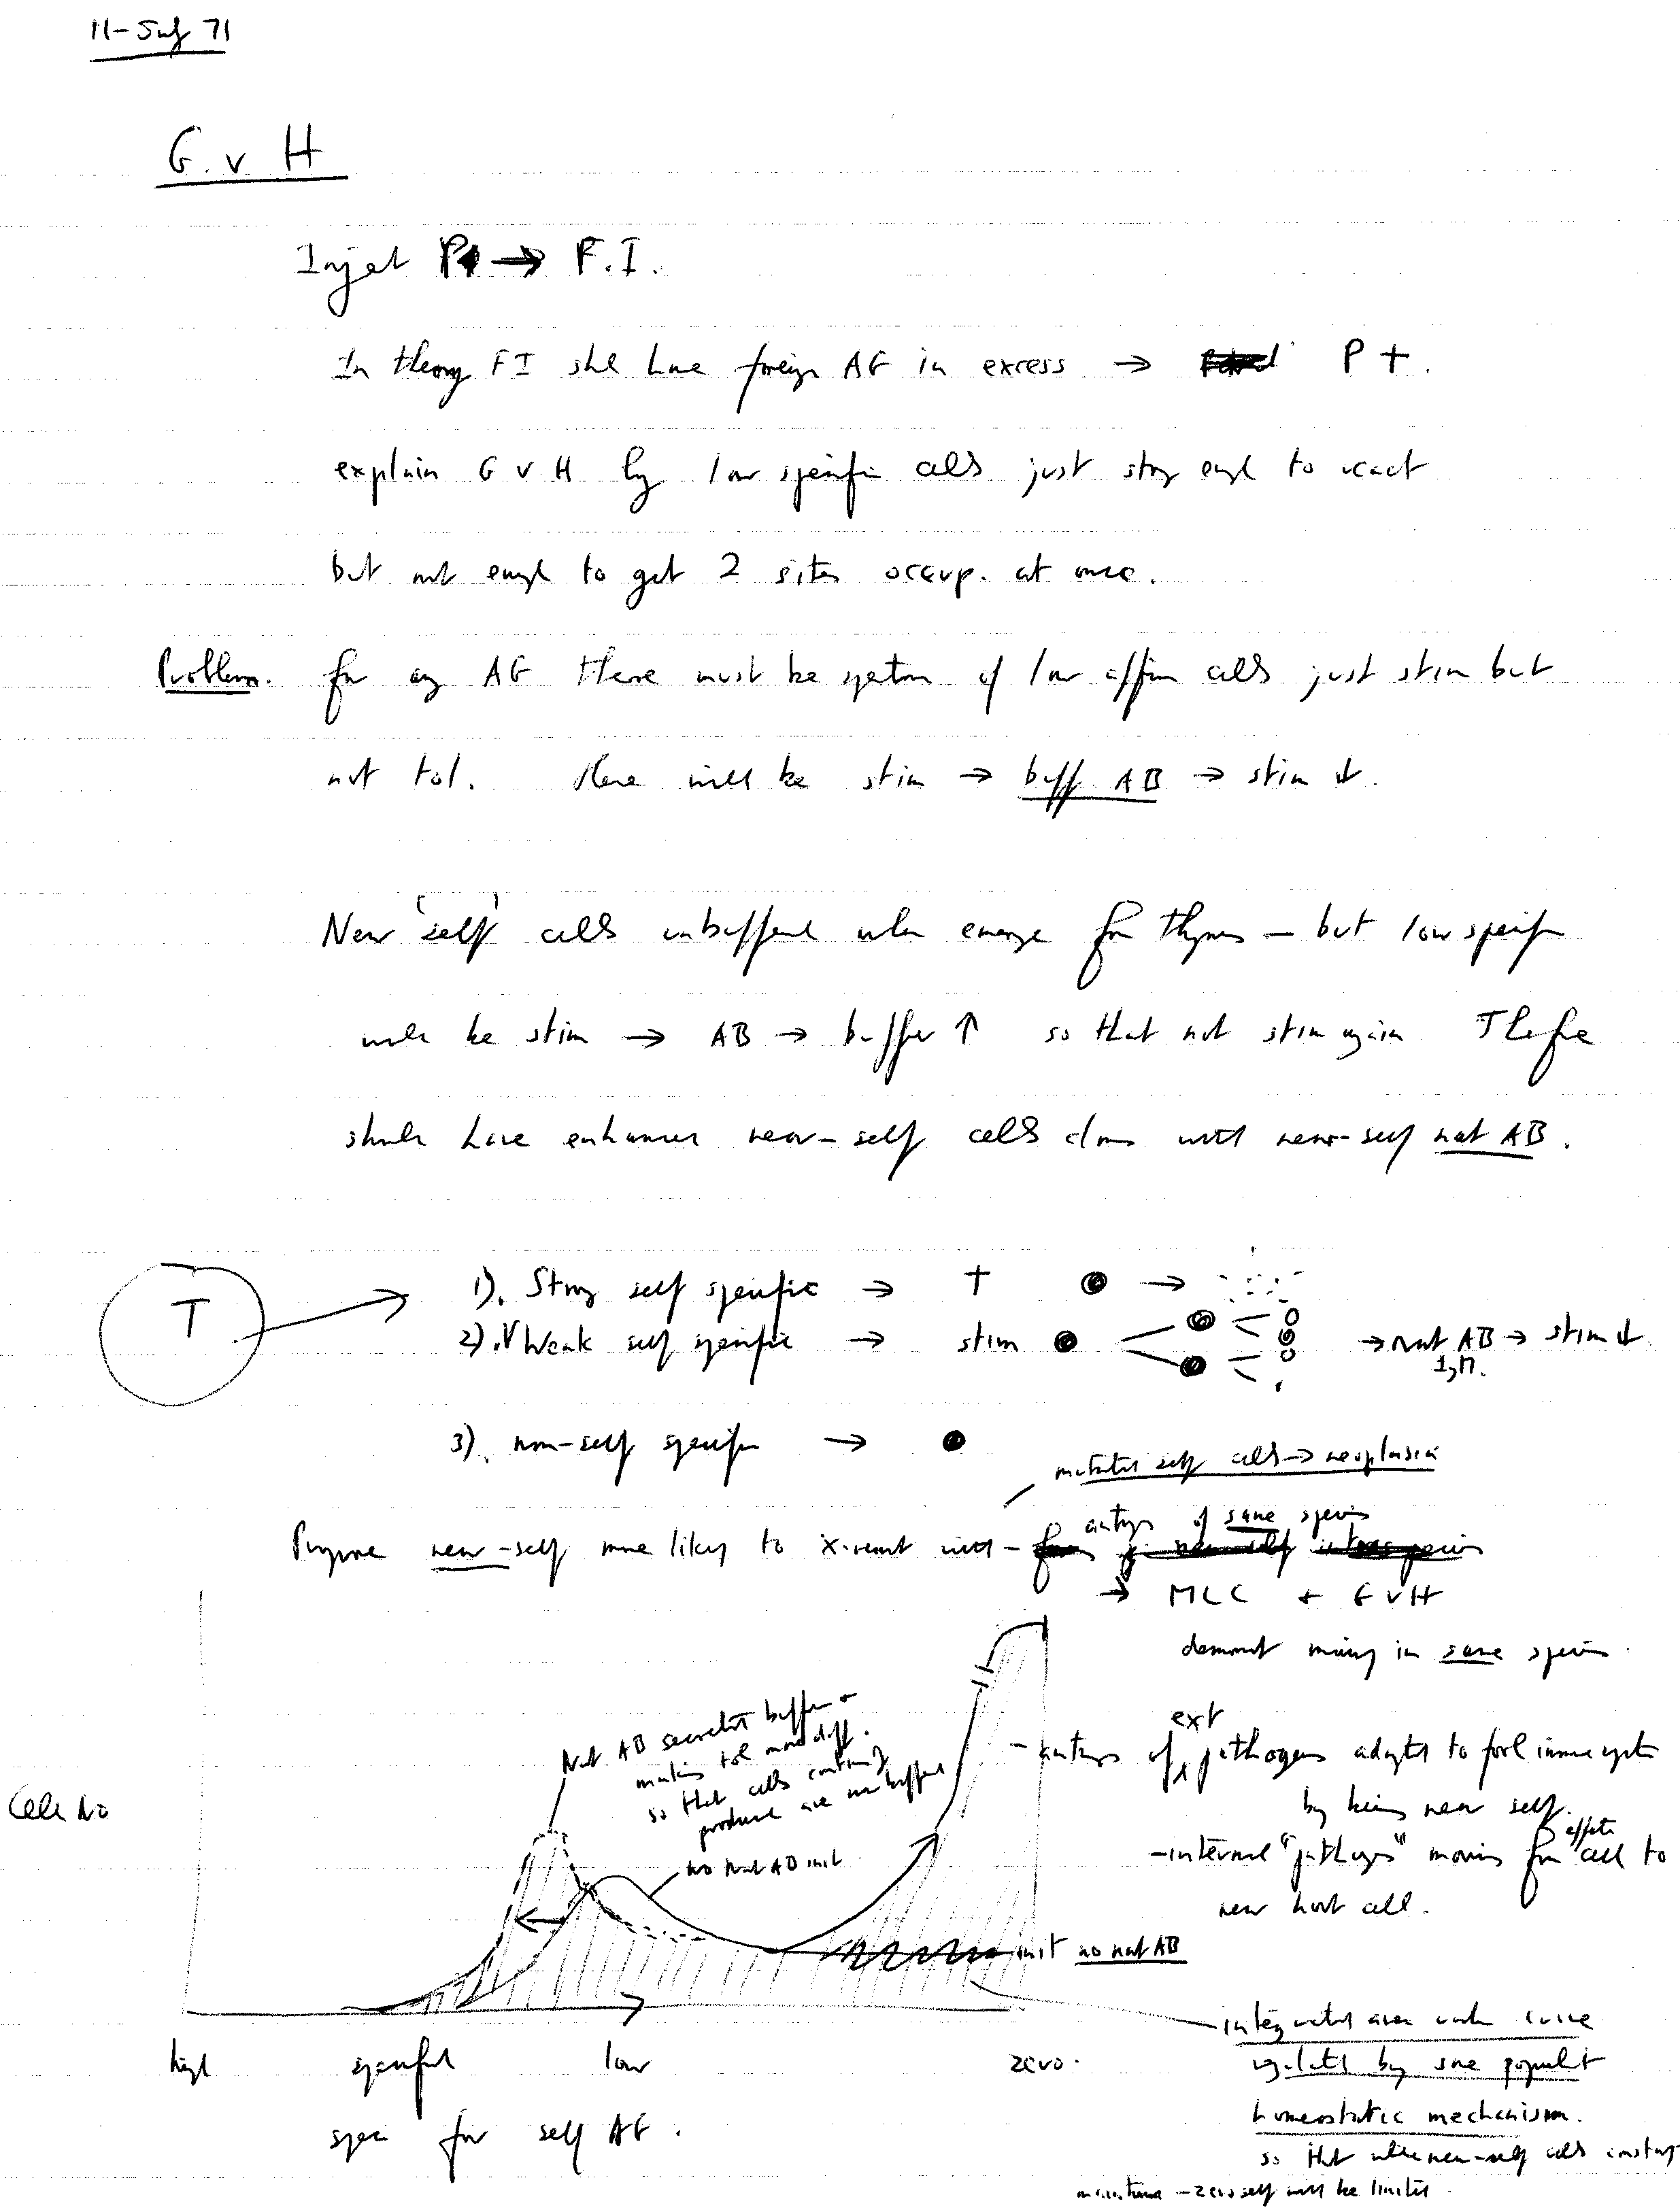 11-July 71
G v H
Inject P → F.I.
In theory F I shd have foreign AG in excess → P †.
explain G v H by low specific cells just strong engh to react
but not engh to get 2 sites occup. at once.
Problem. for any AG there must be spectrum of low affin cells just stim but
not tol. These will be stim → buff AB → stim ↓.
New 'self' cells unbuffered when emerge from thymus – but low specific
will be stim → AB → buffer ↑ so that not stim again Therefore
should have enhanced near-self cells clone with near-self nat AB.
T
1). Strong self specific → †
2). Weak self specific → stim → nat AB → stim ↓.
IgM.
3). non-self specific →
mutated self cells → neoplasia
antigs of same species
Propose near-self more likely to x-react with –
→ MLC + GVH
demonst mainly in same species.
Nat AB secreted buffer
making tol more diff.
so that cells continuously
produced are un buffered
no Nat AB init
- antigs of ext pathogens adapted to fool immune system
by being near self.
- internal "pathogs" moving from cell to
new host cell.
Cell No
init no nat AB
high specificity low zero.
spec for self AG.
integrated area under curve
regulated by some populat
homeostatic mechanism.
so that when near-self cells
- zero self will be limited.